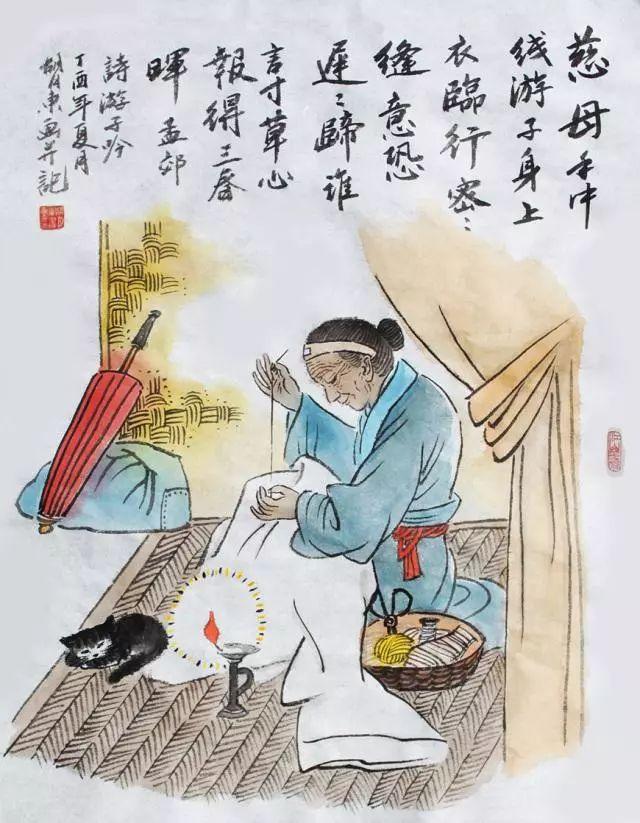 慈母手中
线游子身上
衣臨行密〻
缝意恐
遲〻歸谁
言寸草心
報得三春
暉 孟郊
詩游子吟
丁酉年夏月
画并記